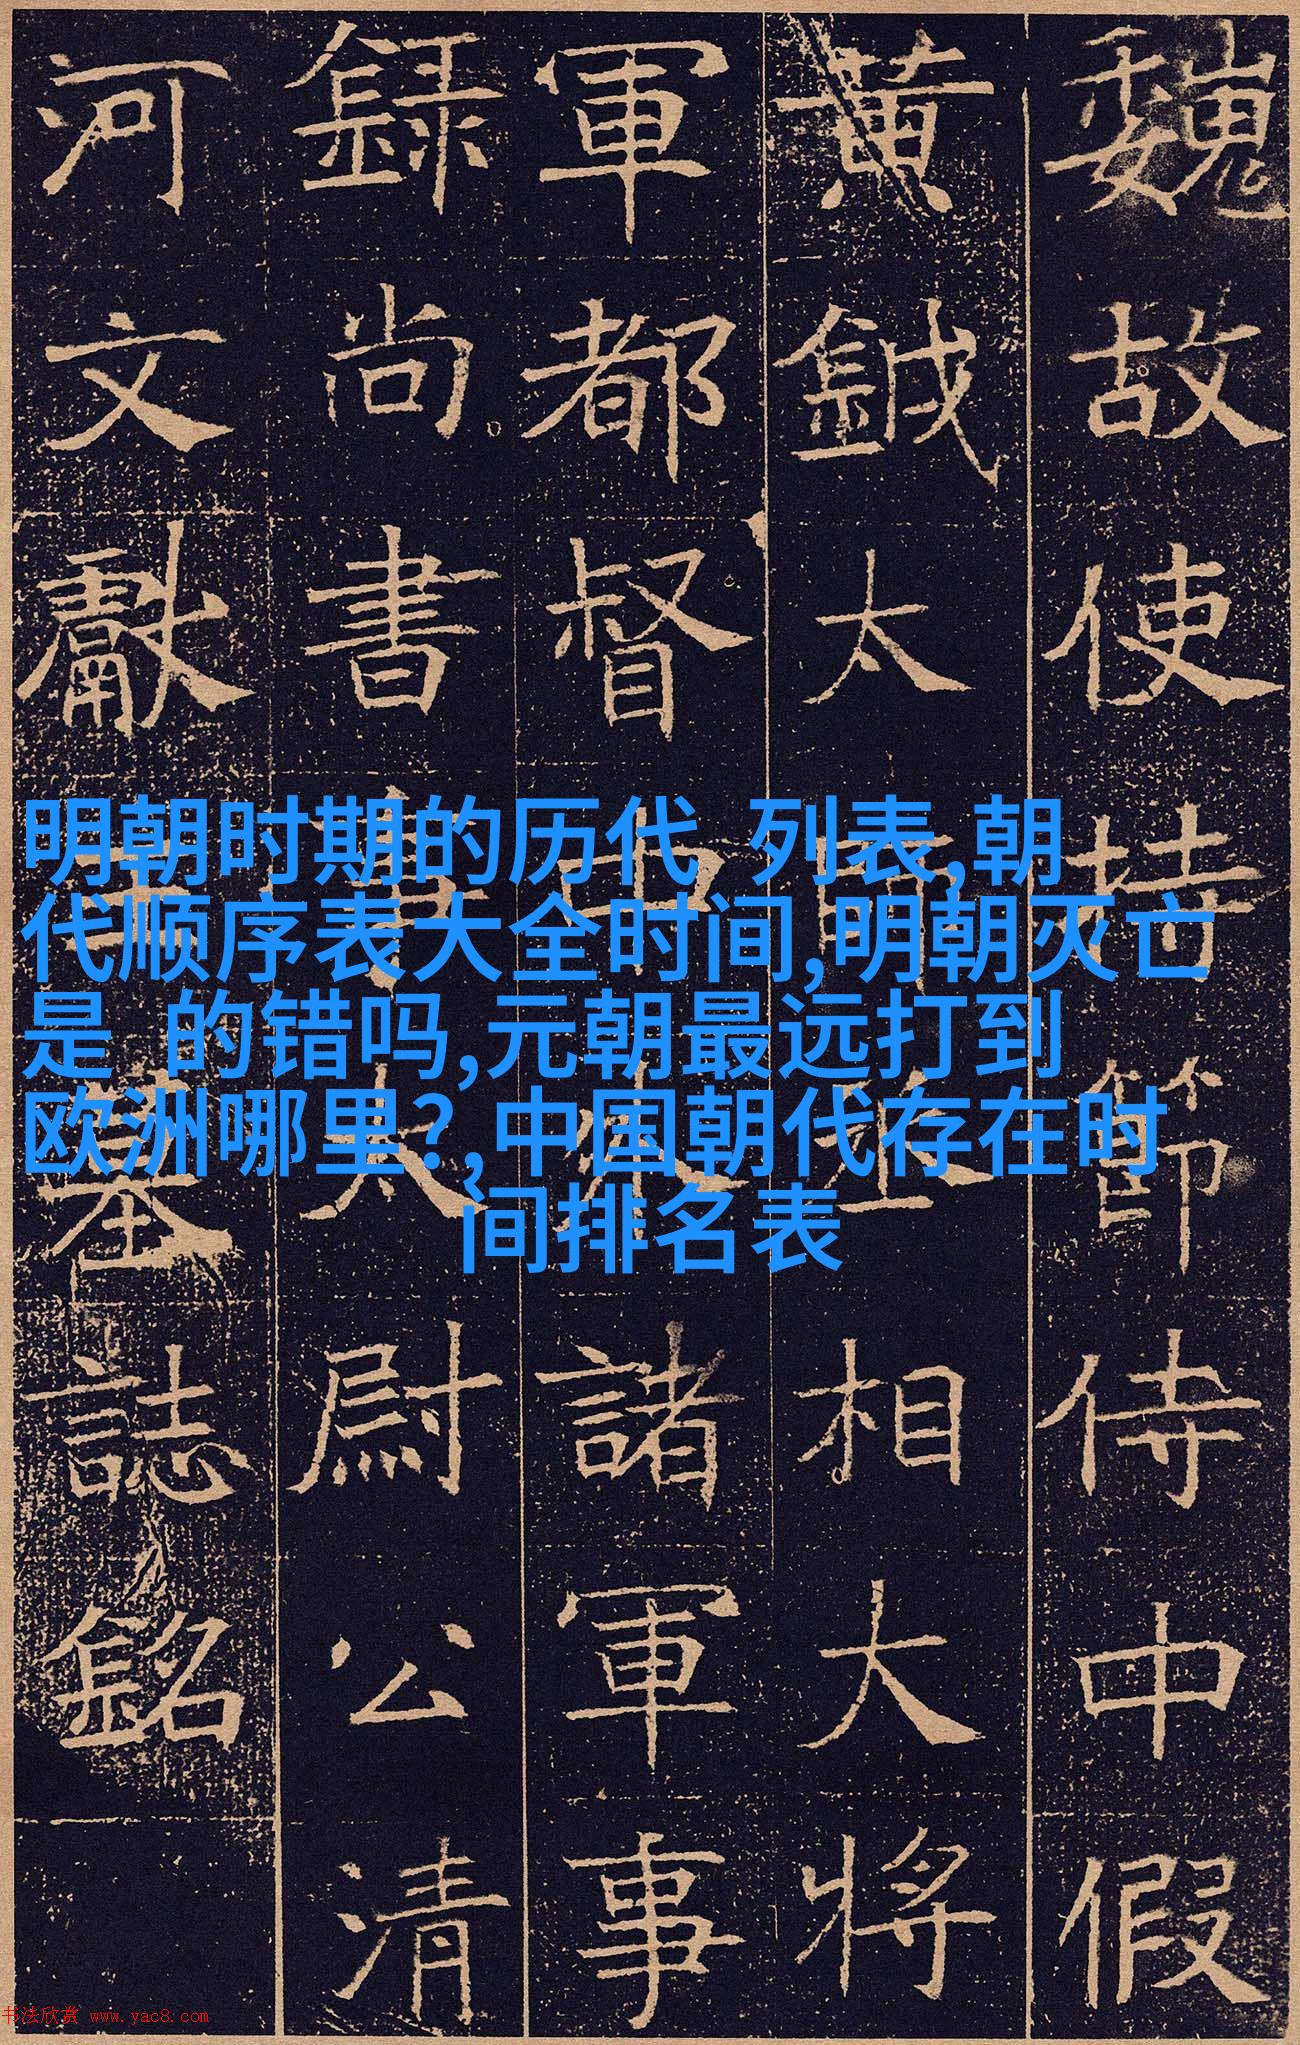 魏故使持節侍中假
黄鉞太師丞相大將
軍都督中外諸軍事
録尚書事太尉公清
河文獻王墓誌銘
明朝时期的历代 列表,朝
代顺序表大全时间,明朝灭亡
是 的错吗,元朝最远打到
欧洲哪里?,中国朝代存在时
间排名表
书法欣赏 www.yac8.com